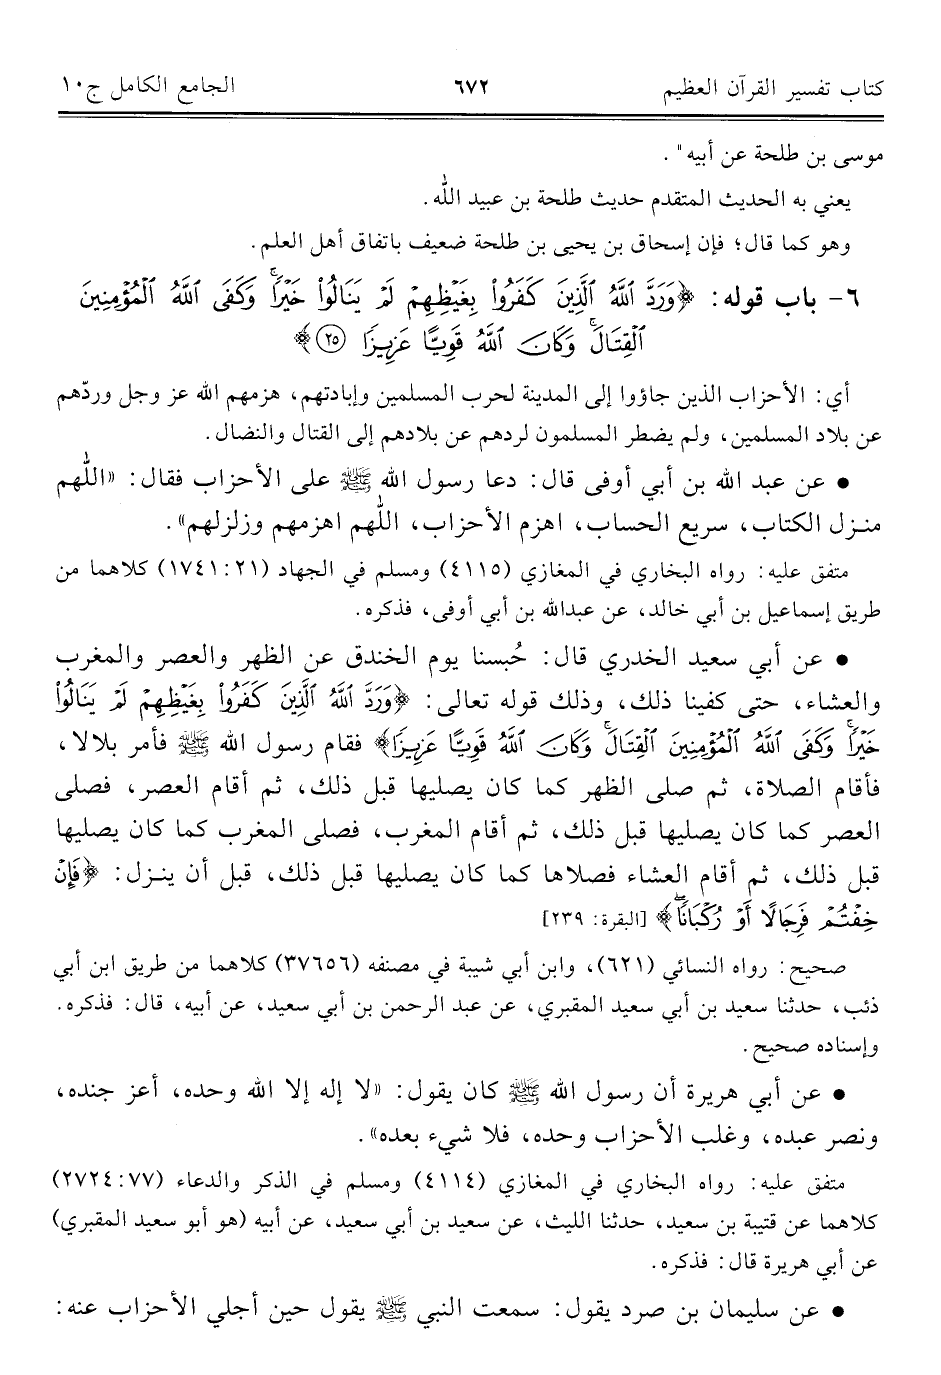 كتاب تفسير القرآن العظيم ٦٧٢ الجامع الكامل ج١٠
موسى بن طلحة عن أبيه" .
يعني به الحديث المتقدم حديث طلحة بن عبيد الله.
وهو كما قال؛ فإن إسحاق بن يحيى بن طلحة ضعيف باتفاق أهل العلم.
٦- باب قوله: ﴿وَرَدَّ ٱللَّهُ ٱلَّذِينَ كَفَرُوا۟ بِغَيْظِهِمْ لَمْ يَنَالُوا۟ خَيْرًا ۚ وَكَفَى ٱللَّهُ ٱلْمُؤْمِنِينَ
ٱلْقِتَالَ ۚ وَكَانَ ٱللَّهُ قَوِيًّا عَزِيزًا ٢٥﴾
أي: الأحزاب الذين جاؤوا إلى المدينة لحرب المسلمين وإبادتهم، هزمهم الله عز وجل وردّهم
عن بلاد المسلمين، ولم يضطر المسلمون لردهم عن بلادهم إلى القتال والنضال.
• عن عبد الله بن أبي أوفى قال: دعا رسول الله ﷺ على الأحزاب فقال: «اللّهم
منزل الكتاب، سريع الحساب، اهزم الأحزاب، اللّهم اهزمهم وزلزلهم».
متفق عليه: رواه البخاري في المغازي (٤١١٥) ومسلم في الجهاد (١٧٤١:٢١) كلاهما من
طريق إسماعيل بن أبي خالد، عن عبدالله بن أبي أوفى، فذكره.
• عن أبي سعيد الخدري قال: حُبسنا يوم الخندق عن الظهر والعصر والمغرب
والعشاء، حتى كفينا ذلك، وذلك قوله تعالى: ﴿وَرَدَّ ٱللَّهُ ٱلَّذِينَ كَفَرُوا۟ بِغَيْظِهِمْ لَمْ يَنَالُوا۟
خَيْرًا ۚ وَكَفَى ٱللَّهُ ٱلْمُؤْمِنِينَ ٱلْقِتَالَ ۚ وَكَانَ ٱللَّهُ قَوِيًّا عَزِيزًا﴾ فقام رسول الله ﷺ فأمر بلالا،
فأقام الصلاة، ثم صلى الظهر كما كان يصليها قبل ذلك، ثم أقام العصر، فصلى
العصر كما كان يصليها قبل ذلك، ثم أقام المغرب، فصلى المغرب كما كان يصليها
قبل ذلك، ثم أقام العشاء فصلاها كما كان يصليها قبل ذلك، قبل أن ينزل: ﴿فَإِنْ
خِفْتُمْ فَرِجَالًا أَوْ رُكْبَانًا ۖ﴾ [البقرة: ٢٣٩]
صحيح: رواه النسائي (٦٢١)، وابن أبي شيبة في مصنفه (٣٧٦٥٦) كلاهما من طريق ابن أبي
ذئب، حدثنا سعيد بن أبي سعيد المقبري، عن عبد الرحمن بن أبي سعيد، عن أبيه، قال: فذكره.
وإسناده صحيح.
• عن أبي هريرة أن رسول الله ﷺ كان يقول: «لا إله إلا الله وحده، أعز جنده،
ونصر عبده، وغلب الأحزاب وحده، فلا شيء بعده».
متفق عليه: رواه البخاري في المغازي (٤١١٤) ومسلم في الذكر والدعاء (٢٧٢٤:٧٧)
كلاهما عن قتيبة بن سعيد، حدثنا الليث، عن سعيد بن أبي سعيد، عن أبيه (هو أبو سعيد المقبري)
عن أبي هريرة قال: فذكره.
• عن سليمان بن صرد يقول: سمعت النبي ﷺ يقول حين أجلي الأحزاب عنه: